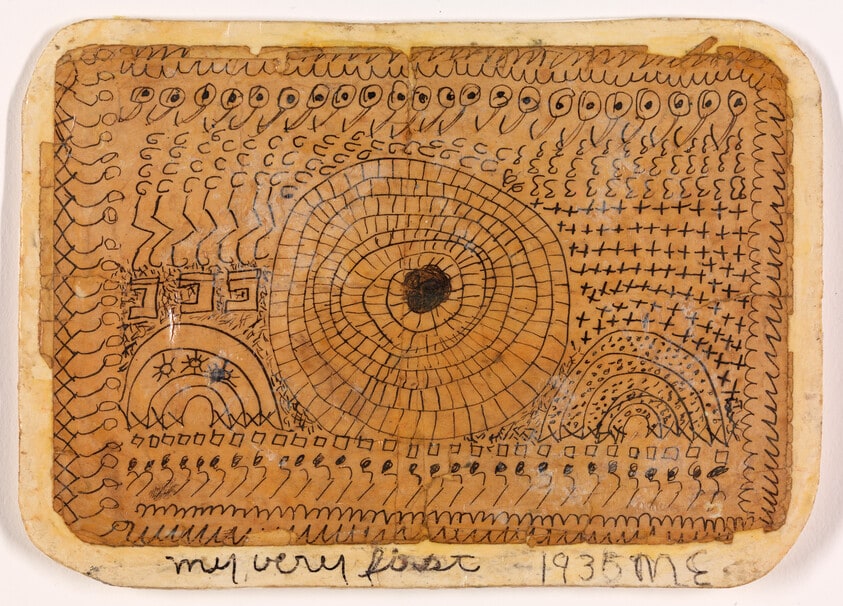 my very first 1935 ME